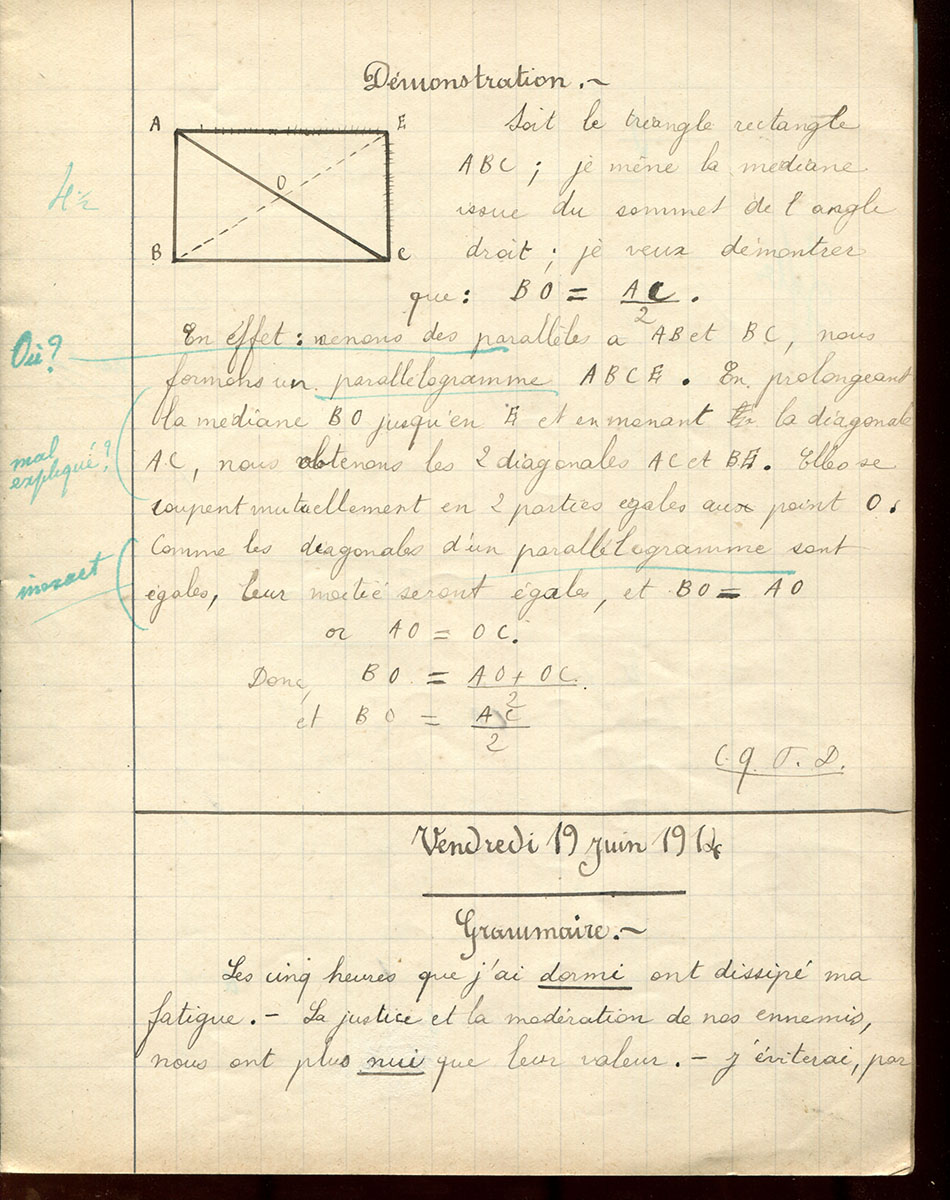 Démonstration.~
A
E
O
B
C
4 1/2
Soit le triangle rectangle
ABC ; je mène la mediane
issue du sommet de l'angle
droit ; je veux démontrer
que : BO = AC/2 .
Où ?
En effet : menons des parallèles a AB et BC, nous
formons un parallélogramme ABCE . En prolongeant
la mediane BO jusqu'en E et en menant la diagonale
mal
expliqué ?
AC, nous obtenons les 2 diagonales AC et BE. Elles se
coupent mutuellement en 2 parties egales aux point O.
Comme les diagonales d'un parallélogramme sont
inexact
égales, leur moitié seront égales, et BO = AO
or AO = OC.
Donc, BO = AO + OC/2
et BO = AC/2
C. q. F. D.
Vendredi 19 juin 1914
Grammaire.~
Les cinq heures que j'ai dormi ont dissipé ma
fatigue. – La justice et la modération de nos ennemis,
nous ont plus nui que leur valeur. – J'éviterai, par